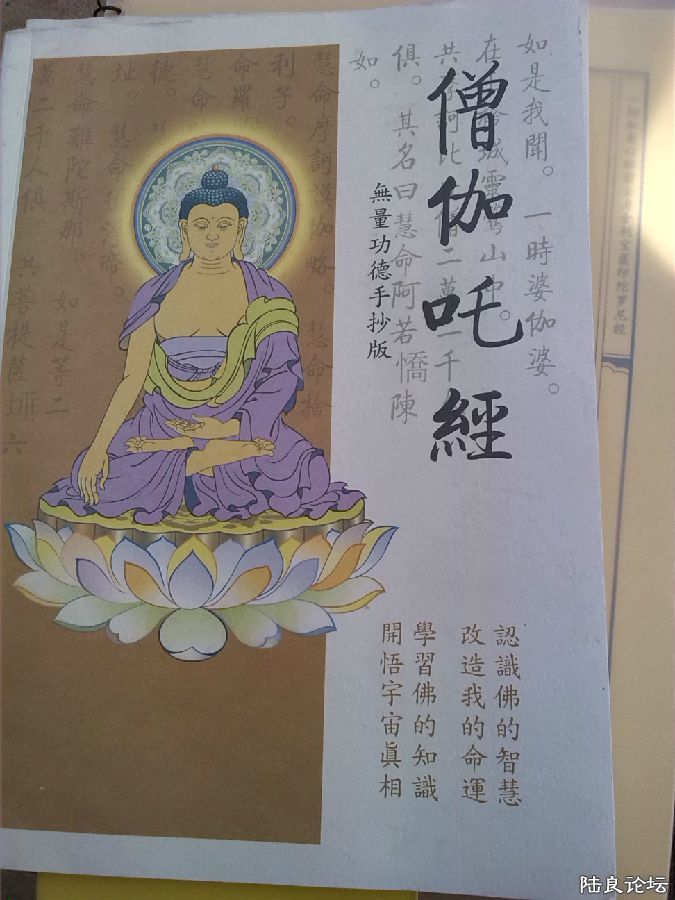 如是我聞。一時婆伽婆。
在 城靈鷲山中。
共 訶比 二萬二千
俱。其名曰慧命阿若憍陳
如。
僧伽吒經
無量功德手抄版
慧命摩訶謨伽略。慧命舍
利子。
命羅
慧命
德。
址。慧命 帝。
慧命難陀斯那。如是等二
萬二千人俱。共菩提薩埵六
認識佛的智慧
改造我的命運
學習佛的知識
開悟宇宙眞相
陆良论坛